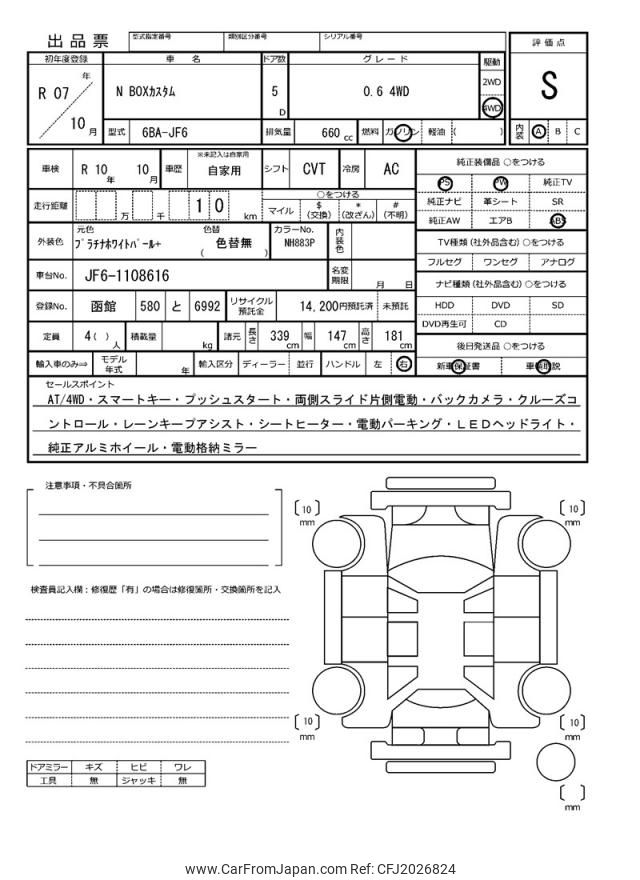 出品票
型式指定番号 類別区分番号 シリアル番号
評価点
S
内装 A B C
初年度登録 車名 ドア数 グレード 駆動
R 07 年 10 月
N BOXカスタム
5 D
0.6 4WD
2WD
4WD
型式 6BA-JF6 排気量 660 cc 燃料 ガソリン 軽油 ( )
車検 R 10 年 10 月 車歴 ※未記入は自家用 自家用 シフト CVT 冷房 AC
走行距離 万 千 1 0 km
○をつける
マイル $(交換) *(改ざん) #(不明)
外装色 元色 プラチナホワイトパール+ 色替 ( 色替無 ) カラーNo. NH883P 内装色
車台No. JF6-1108616 名変期限 月 日
登録No. 函館 580 と 6992 リサイクル預託金 14,200円預託済 未預託
定員 4( ) 人 積載量 kg 諸元 長さ 339 cm 幅 147 cm 高さ 181 cm
輸入車のみ⇒ モデル年式 年 輸入区分 ディーラー 並行 ハンドル 左 右
純正装備品 ○をつける
PS PW 純正TV
純正ナビ 革シート SR
純正AW エアB ABS
TV種類(社外品含む)○をつける
フルセグ ワンセグ アナログ
ナビ種類(社外品含む)○をつける
HDD DVD SD
DVD再生可 CD
後日発送品 ○をつける
新車保証書 車輌取説
セールスポイント
AT/4WD・スマートキー・プッシュスタート・両側スライド片側電動・バックカメラ・クルーズコ
ントロール・レーンキープアシスト・シートヒーター・電動パーキング・LEDヘッドライト・
純正アルミホイール・電動格納ミラー
注意事項・不具合箇所
検査員記入欄:修復歴「有」の場合は修復箇所・交換箇所を記入
ドアミラー キズ ヒビ ワレ
工具 無 ジャッキ 無
[10] mm
[10] mm
[10] mm
[10] mm
[ ] mm
www.CarFromJapan.com Ref: CFJ2026824